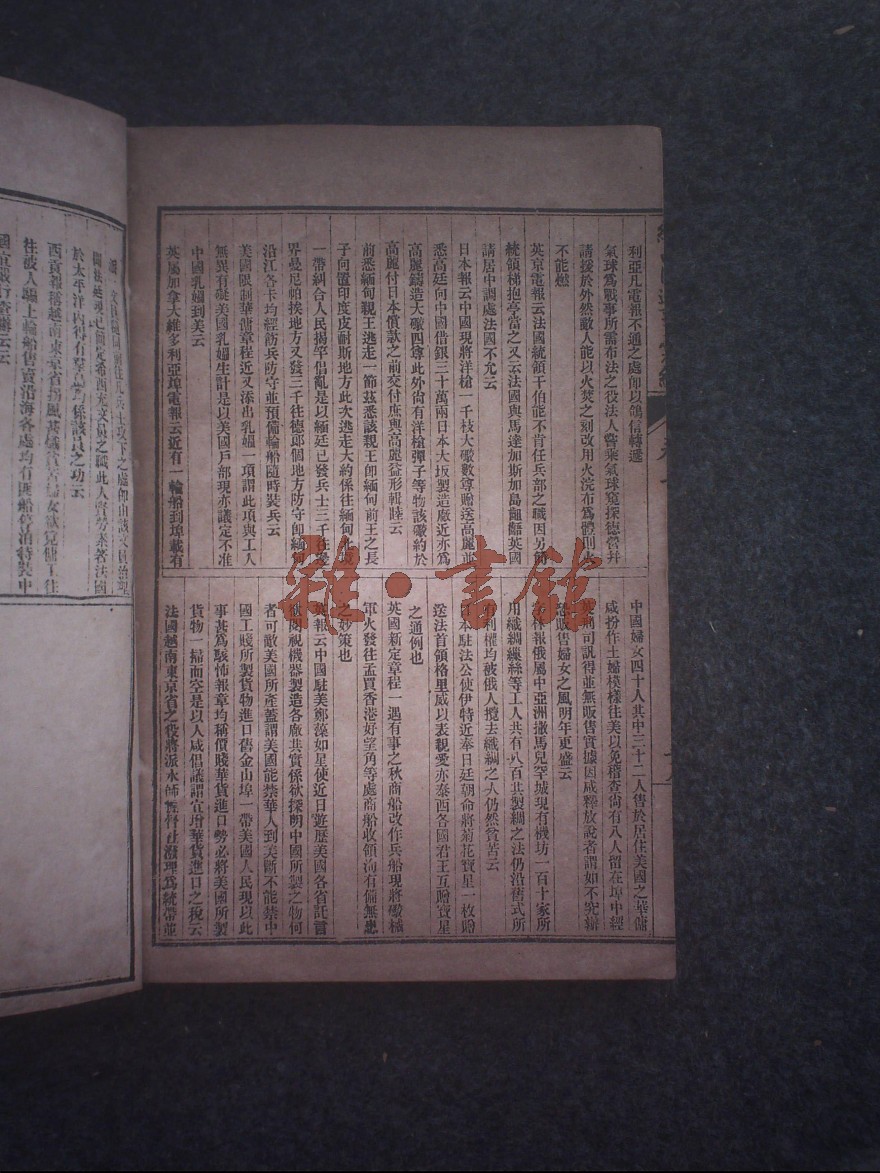 利亞凡電報不通之處卽以鴿信轉遞
氣球爲戰事所需布法之役法人嘗乘氣球窺探德營幷
請援於外然敵人能以火焚之刻改用火浣布爲體則火
不能燃
英京電報云法國統領干伯能不肯任兵部之職因另簡
統領梯抱亭當之又云法國與馬達加斯加島齟齬英國
請居中調處法國不允云
日本報云中國現將洋槍一千枝大礮數尊贈送高麗並
悉高廷向中國借銀三十萬兩日本大坂製造廠近亦爲
高麗鑄造大礮四尊此外尙有洋槍彈子等物該礮約於
高麗付日本償款之前交付庶與高麗益形輯睦云
前悉緬甸親王逃走一節茲悉該親王卽緬甸前王之長
子向置印度皮耐斯地方此次逃走大約係往緬甸北境
一帶糾合人民揭竿倡亂是以緬廷已發兵士三千往
界曼尼帕挨地方又發三千往德郎個地方防守卽緬甸
沿江各卡均經飭兵防守並預備輪船隨時裝兵云
美國限制華傭章程近又添出乳媼一項謂此項與工人
無異有礙美國乳媼生計是以美國戶部現亦議定不准
中國乳媼到美云
英屬加拿大維多利亞埠電報云近有一輪船到埠載有
中國婦女四十人其中三十二人售於居住美國之華傭
咸扮作土婦模樣往美以免稽查尙有八人留在埠中經
英商司訊得並無販售實據因咸釋放說者謂如不究辦
恐販售婦女之風明年更盛云
林報俄屬中亞洲撒馬兒罕城現有機坊一百十家所
用織綢繅絲等工人共有八百其製綢之法仍沿舊式所
利權均被俄人攬去織綢之人仍然貧苦云
日本駐法公使伊特近奉日廷朝命將菊花寶星一枚贈
送法首領格里威以表親愛亦泰西各國君王互贈寶星
之通例也
英國新定章程一遇有事之秋商船改作兵船現將礮械
軍火發往孟買香港好望角等處商船收領洵有備無患
之妙策也
英報云中國駐美鄭藻如星使近日遊歷美國各省託言
欲閱視機器製造各廠其實係欲探明中國所製之物何
者可敵美國所產蓋謂美國能禁華人到美斷不能禁中
國工賤所製貨物進口舊金山埠一帶美國人民現以此
事甚爲駭怖報章均稱價賤華貨進口勢必將美國所製
貨物一掃而空是以人咸倡議謂宜增華貨進口之稅云
法國越南東京省之役將派水師提督杜潑理爲統帶並
於太平洋內得有羣島均係該員之功云
西貢報稱越南東京省
往被人騙上輪船售賣沿海各處均有匪船停泊特裝中
雜·書館